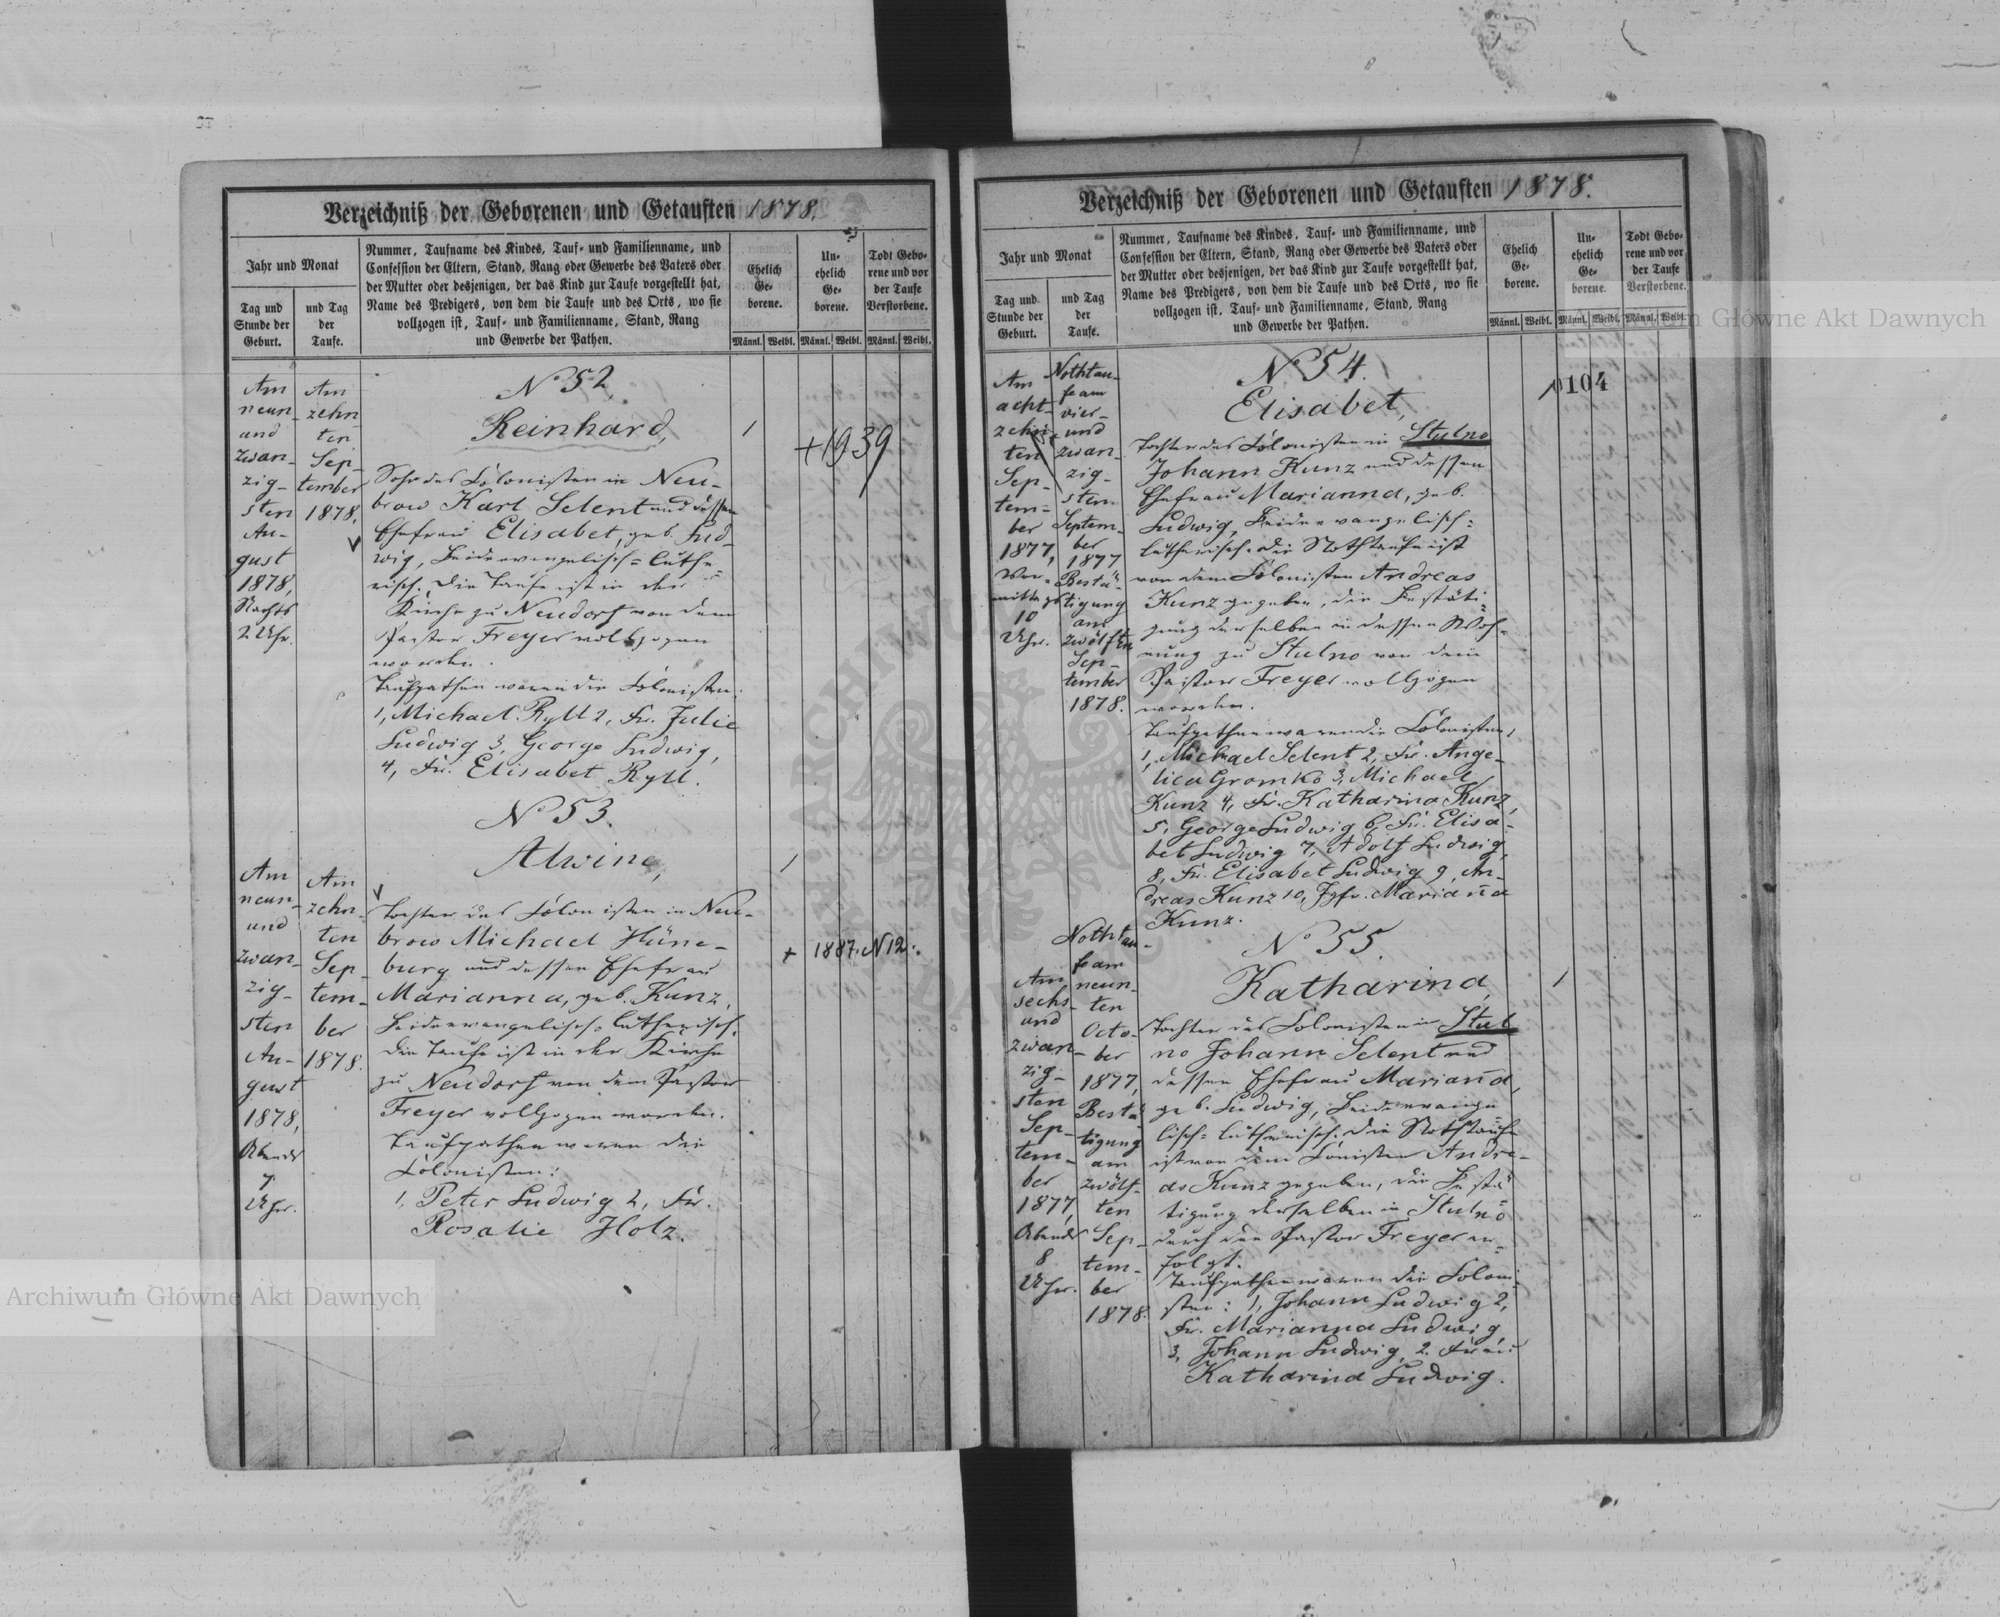 Verzeichniß der Geborenen und Getauften 1878.
Jahr und Monat
Tag und
Stunde der
Geburt.
und Tag
der
Taufe.
Nummer, Taufname des Kindes, Tauf- und Familienname, und
Confession der Eltern, Stand, Rang oder Gewerbe des Vaters oder
der Mutter oder desjenigen, der das Kind zur Taufe vorgestellt hat,
Name des Predigers, von dem die Taufe und des Orts, wo sie
vollzogen ist, Tauf- und Familienname, Stand, Rang
und Gewerbe der Pathen.
Ehelich
Ge-
borene.
Un-
ehelich
Ge-
borene.
Todt Gebo-
rene und vor
der Taufe
Verstorbene.
Männl. Weibl. Männl. Weibl. Männl. Weibl.
Am
neun-
und
zwan-
zig-
sten
Au-
gust
1878,
Nachts
2 Uhr.
Am
zehn
ten
Sep-
tember
1878.
No 52.
Reinhard,
Sohn des Colonisten in Neu-
brow Karl Selent und dessen
Ehefrau Elisabet, geb. Lud-
wig, beide evangelisch-luthe-
risch. Die Taufe ist in der
Kirche zu Neudorf von dem
Pastor Freyer vollzogen
worden.
Taufpathen waren die Colonisten:
1, Michael Ryll 2, Fr. Julie
Ludwig 3, George Ludwig,
4, Fr. Elisabet Ryll.
1
+1939
Am
neun-
und
zwan-
zig-
sten
Au-
gust
1878,
Abends
7
Uhr.
Am
zehn-
ten
Sep-
tem-
ber
1878.
No 53.
Alwine,
Tochter des Colonisten in Neu-
brow Michael Hüne-
burg und dessen Ehefrau
Marianna, geb. Kunz,
beide evangelisch-lutherisch.
Die Taufe ist in der Kirche
zu Neudorf von dem Pastor
Freyer vollzogen worden.
Taufpathen waren die
Colonisten:
1, Peter Ludwig 2, Fr.
Rosalie Holz.
1
+ 1887. N 12.
Verzeichniß der Geborenen und Getauften 1878.
Jahr und Monat
Tag und
Stunde der
Geburt.
und Tag
der
Taufe.
Nummer, Taufname des Kindes, Tauf- und Familienname, und
Confession der Eltern, Stand, Rang oder Gewerbe des Vaters oder
der Mutter oder desjenigen, der das Kind zur Taufe vorgestellt hat,
Name des Predigers, von dem die Taufe und des Orts, wo sie
vollzogen ist, Tauf- und Familienname, Stand, Rang
und Gewerbe der Pathen.
Ehelich
Ge-
borene.
Un-
ehelich
Ge-
borene.
Todt Gebo-
rene und vor
der Taufe
Verstorbene.
Männl. Weibl. Männl. Weibl. Männl. Weibl.
Am
acht-
zehn-
ten
Sep-
tem-
ber
1877,
Vor-
mittags
10
Uhr.
Nothtau-
fe am
vier-
und
zwan-
zig-
sten
Septem-
ber
1877
Bestä-
tigung
am
zwölften
Sep-
tember
1878.
No 54.
Elisabet,
Tochter des Colonisten in Stulno
Johann Kunz und dessen
Ehefrau Marianna, geb.
Ludwig, beide evangelisch-
lutherisch. Die Nothtaufe ist
von dem Colonisten Andreas
Kunz gegeben, die Bestäti-
gung derselben in dessen Woh-
nung zu Stulno von dem
Pastor Freyer vollzogen
worden.
Taufpathen waren die Colonisten,
1, Michael Selent 2, Fr. Ange-
lica Gromko 3, Michael
Kunz 4, Fr. Katharina Kunz,
5, George Ludwig 6, Fr. Elisa-
bet Ludwig 7, Adolf Ludwig,
8, Fr. Elisabet Ludwig 9, An-
dreas Kunz 10, Jgfr. Marianna
Kunz.
104
Am
sechs-
und
zwan-
zig-
sten
Sep-
tem-
ber
1877,
Abends
8
Uhr.
Nothtau-
fe am
neun-
ten
Octo-
ber
1877,
Bestä
tigung
am
zwölf-
ten
Sep-
tem-
ber
1878.
No 55.
Katharina,
Tochter des Colonisten in Stul
no Johann Selent und
dessen Ehefrau Marianna,
geb. Ludwig, beide evange
lisch-lutherisch. Die Nothtaufe
ist von dem Conisten Andre-
as Kunz gegeben, die Bestä
tigung derselben in Stulno
durch den Pastor Freyer er-
folgt.
Taufpathen waren die Coloni-
sten: 1, Johann Ludwig 2,
Fr. Marianna Ludwig,
3, Johann Ludwig, 2. Frau
Katharina Ludwig.
1
Archiwum Główne Akt Dawnych
Główne Akt Dawnych